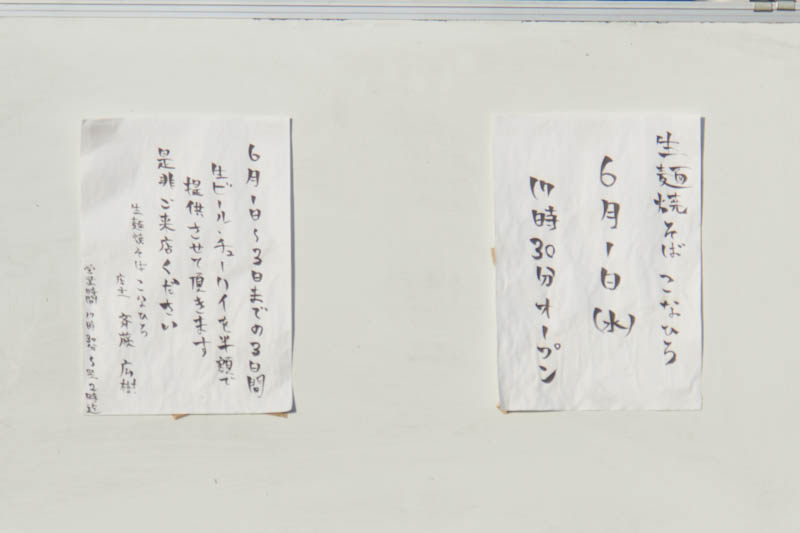 生麺焼そば こなひろ
6月1日(水)
17時30分オープン
6月1日~3日までの3日間
生ビール・チューハイを半額で
提供させて頂きます
是非ご来店ください
生麺焼そば こなひろ
店主 斉藤 広樹
営業時間 17時30分~翌2時迄